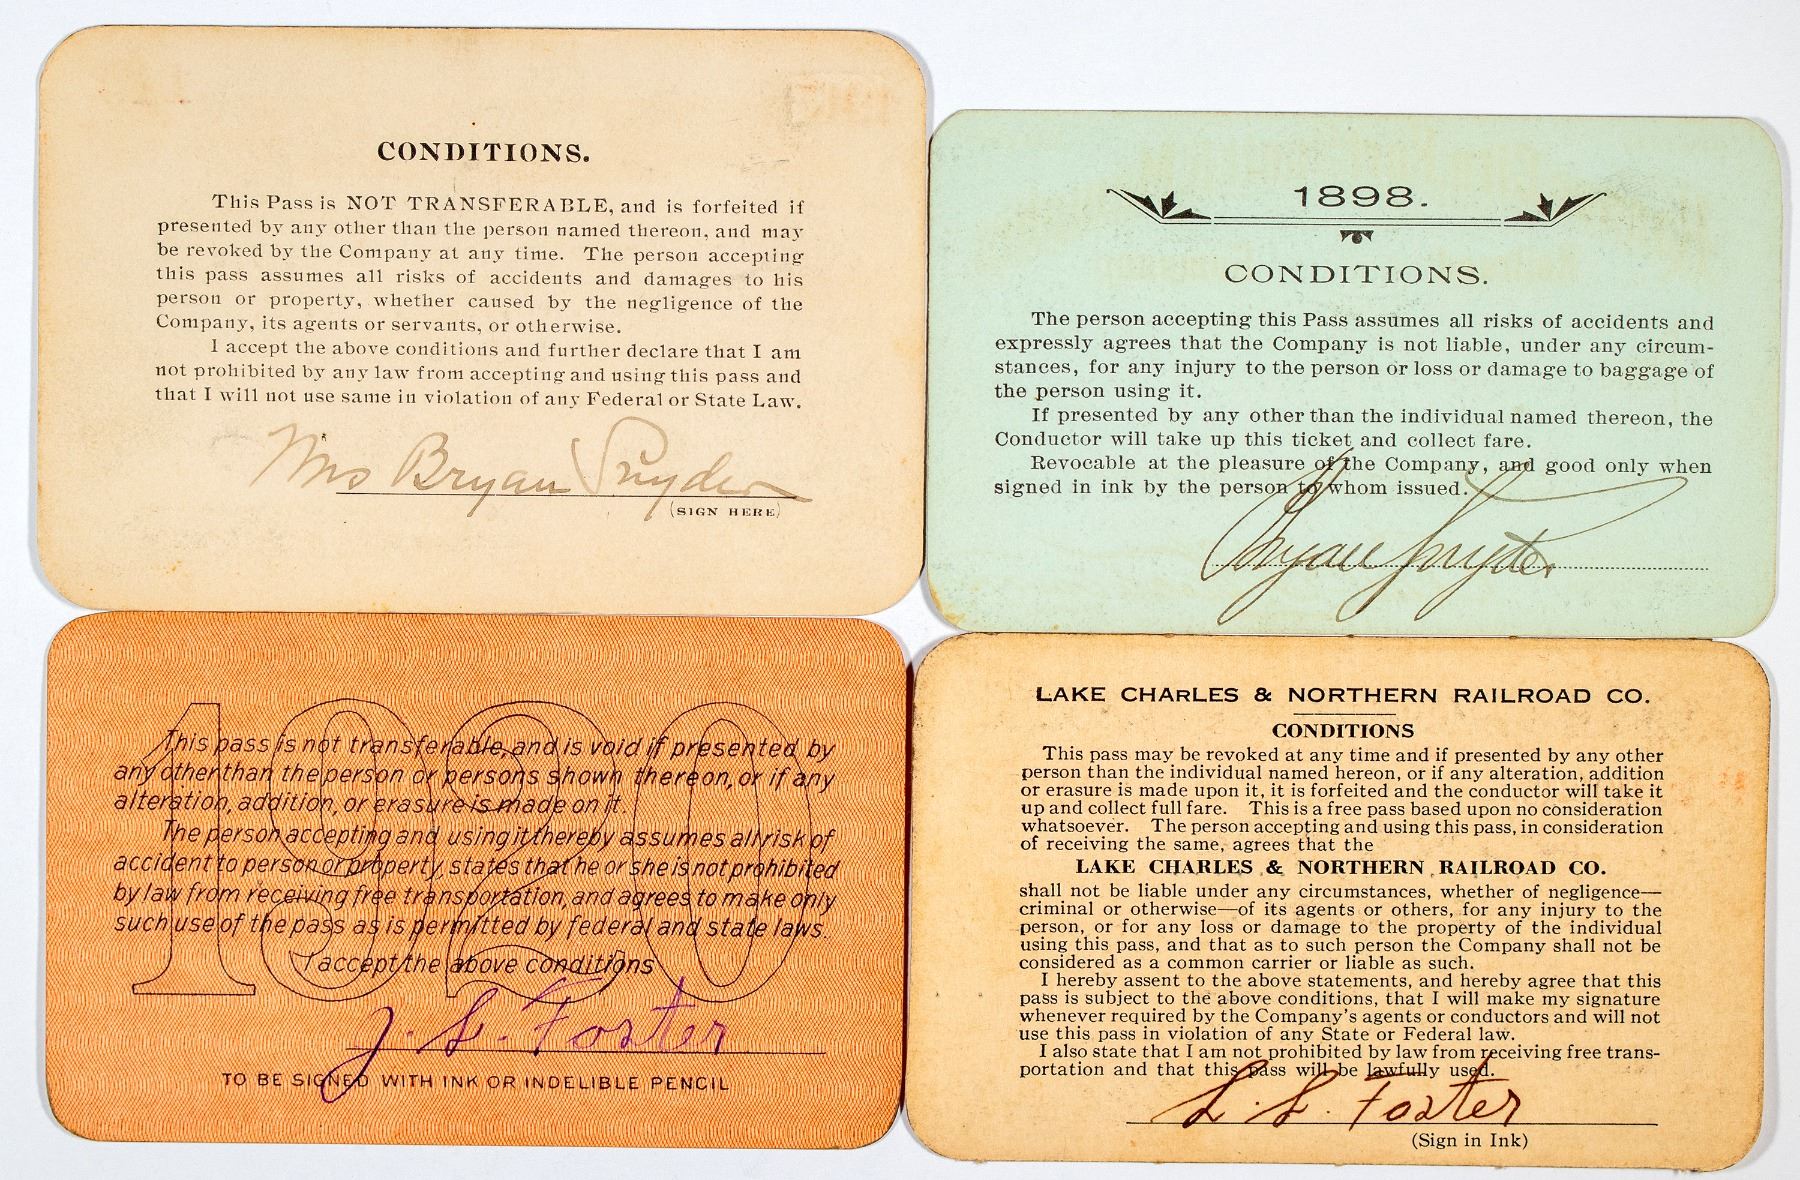 CONDITIONS.
This Pass is NOT TRANSFERABLE, and is forfeited if
presented by any other than the person named thereon, and may
be revoked by the Company at any time. The person accepting
this pass assumes all risks of accidents and damages to his
person or property, whether caused by the negligence of the
Company, its agents or servants, or otherwise.
I accept the above conditions and further declare that I am
not prohibited by any law from accepting and using this pass and
that I will not use same in violation of any Federal or State Law.
Mrs Bryan Snyder
(SIGN HERE)
1898.
CONDITIONS.
The person accepting this Pass assumes all risks of accidents and
expressly agrees that the Company is not liable, under any circum-
stances, for any injury to the person or loss or damage to baggage of
the person using it.
If presented by any other than the individual named thereon, the
Conductor will take up this ticket and collect fare.
Revocable at the pleasure of the Company, and good only when
signed in ink by the person to whom issued.
Bryan Snyder
1920
This pass is not transferable, and is void if presented by
any other than the person or persons shown thereon, or if any
alteration, addition, or erasure is made on it.
The person accepting and using it thereby assumes all risk of
accident to person or property, states that he or she is not prohibited
by law from receiving free transportation, and agrees to make only
such use of the pass as is permitted by federal and state laws.
I accept the above conditions
J. S. Foster
TO BE SIGNED WITH INK OR INDELIBLE PENCIL
LAKE CHArLES & NORTHERN RAILROAD CO.
CONDITIONS
This pass may be revoked at any time and if presented by any other
person than the individual named hereon, or if any alteration, addition
or erasure is made upon it, it is forfeited and the conductor will take it
up and collect full fare. This is a free pass based upon no consideration
whatsoever. The person accepting and using this pass, in consideration
of receiving the same, agrees that the
LAKE CHARLES & NORTHERN RAILROAD CO.
shall not be liable under any circumstances, whether of negligence—
criminal or otherwise—of its agents or others, for any injury to the
person, or for any loss or damage to the property of the individual
using this pass, and that as to such person the Company shall not be
considered as a common carrier or liable as such.
I hereby assent to the above statements, and hereby agree that this
pass is subject to the above conditions, that I will make my signature
whenever required by the Company's agents or conductors and will not
use this pass in violation of any State or Federal law.
I also state that I am not prohibited by law from receiving free trans-
portation and that this pass will be lawfully used.
S. S. Foster
(Sign in Ink)